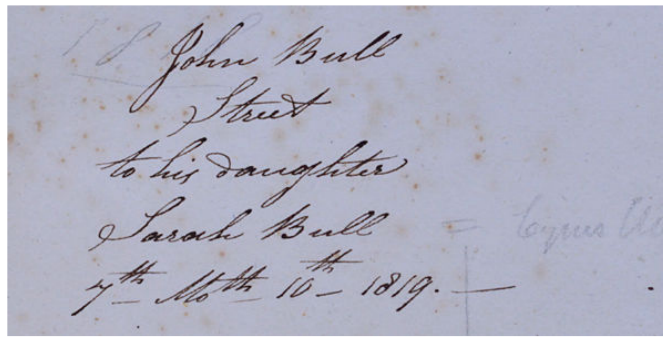 John Bull
Street
to his daughter
Sarah Bull
7th Moth 10th 1819. —